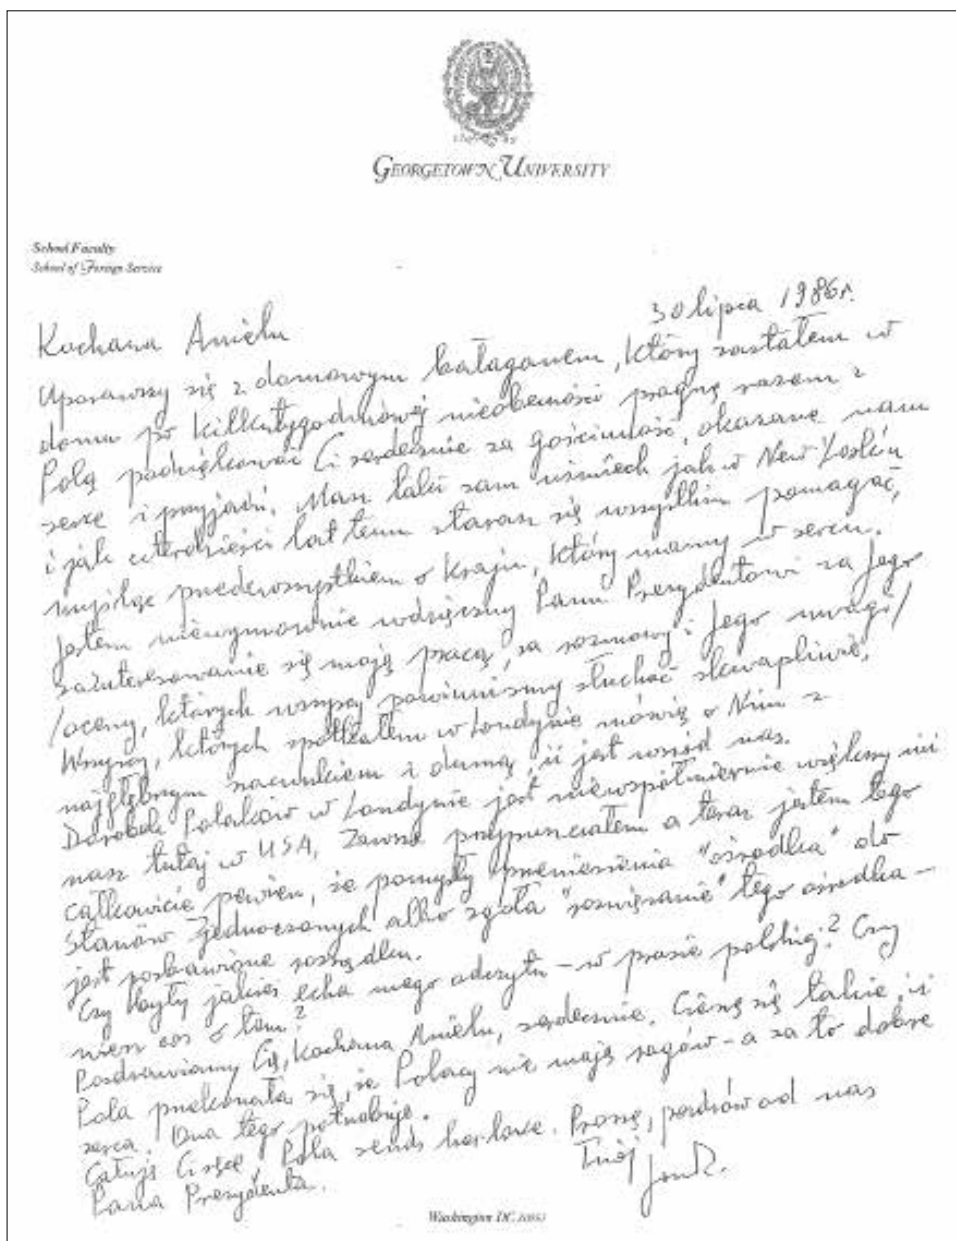 GEORGETOWN UNIVERSITY
School Faculty
School of Foreign Service
30 lipca 1986r.
Kochana Anielu
Uporawszy się z domowym bałaganem, który zastałem w
domu po kilkutygodniowej nieobecności pragnę razem z
Polą podziękować Ci serdecznie za gościnność, okazane nam
serce i przyjaźń. Masz taki sam uśmiech jak w New Yorku
i jak czterdzieści lat temu starasz się wszystkim pomagać,
myśląc przedewszystkiem o Kraju, który mamy w sercu.
Jestem niewymownie wdzięczny Panu Prezydentowi za Jego
zainteresowanie się moją pracą, za rozmowy i Jego uwagi/
/oceny, których wszyscy powinniśmy słuchać skwapliwie.
Wszyscy, których spotkałem w Londynie mówią o Nim z
najgłębszym szacunkiem i dumą, iż jest wśród nas.
Dorobek Polaków w Londynie jest niewspółmiernie większy niż
nasz tutaj w USA. Zawsze przypuszczałem a teraz jestem tego
całkowicie pewien, że pomysły przeniesienia "ośrodka" do
Stanów Zjednoczonych albo zgoła "rozwiązanie" tego ośrodka -
jest pozbawione rozsądku.
Czy były jakieś echa mego odczytu - w prasie polskiej? Czy
wiesz coś o tem?
Pozdrawiamy Cię, Kochana Anielu, serdecznie. Cieszę się także, iż
Pola przekonała się, że Polacy nie mają rogów - a za to dobre
serca. Ona tego potrzebuje.
Całuję Ci ręce. Pola sends her love. Proszę, pozdrów od nas
Pana Prezydenta.
Twój
Jan K.
Washington DC